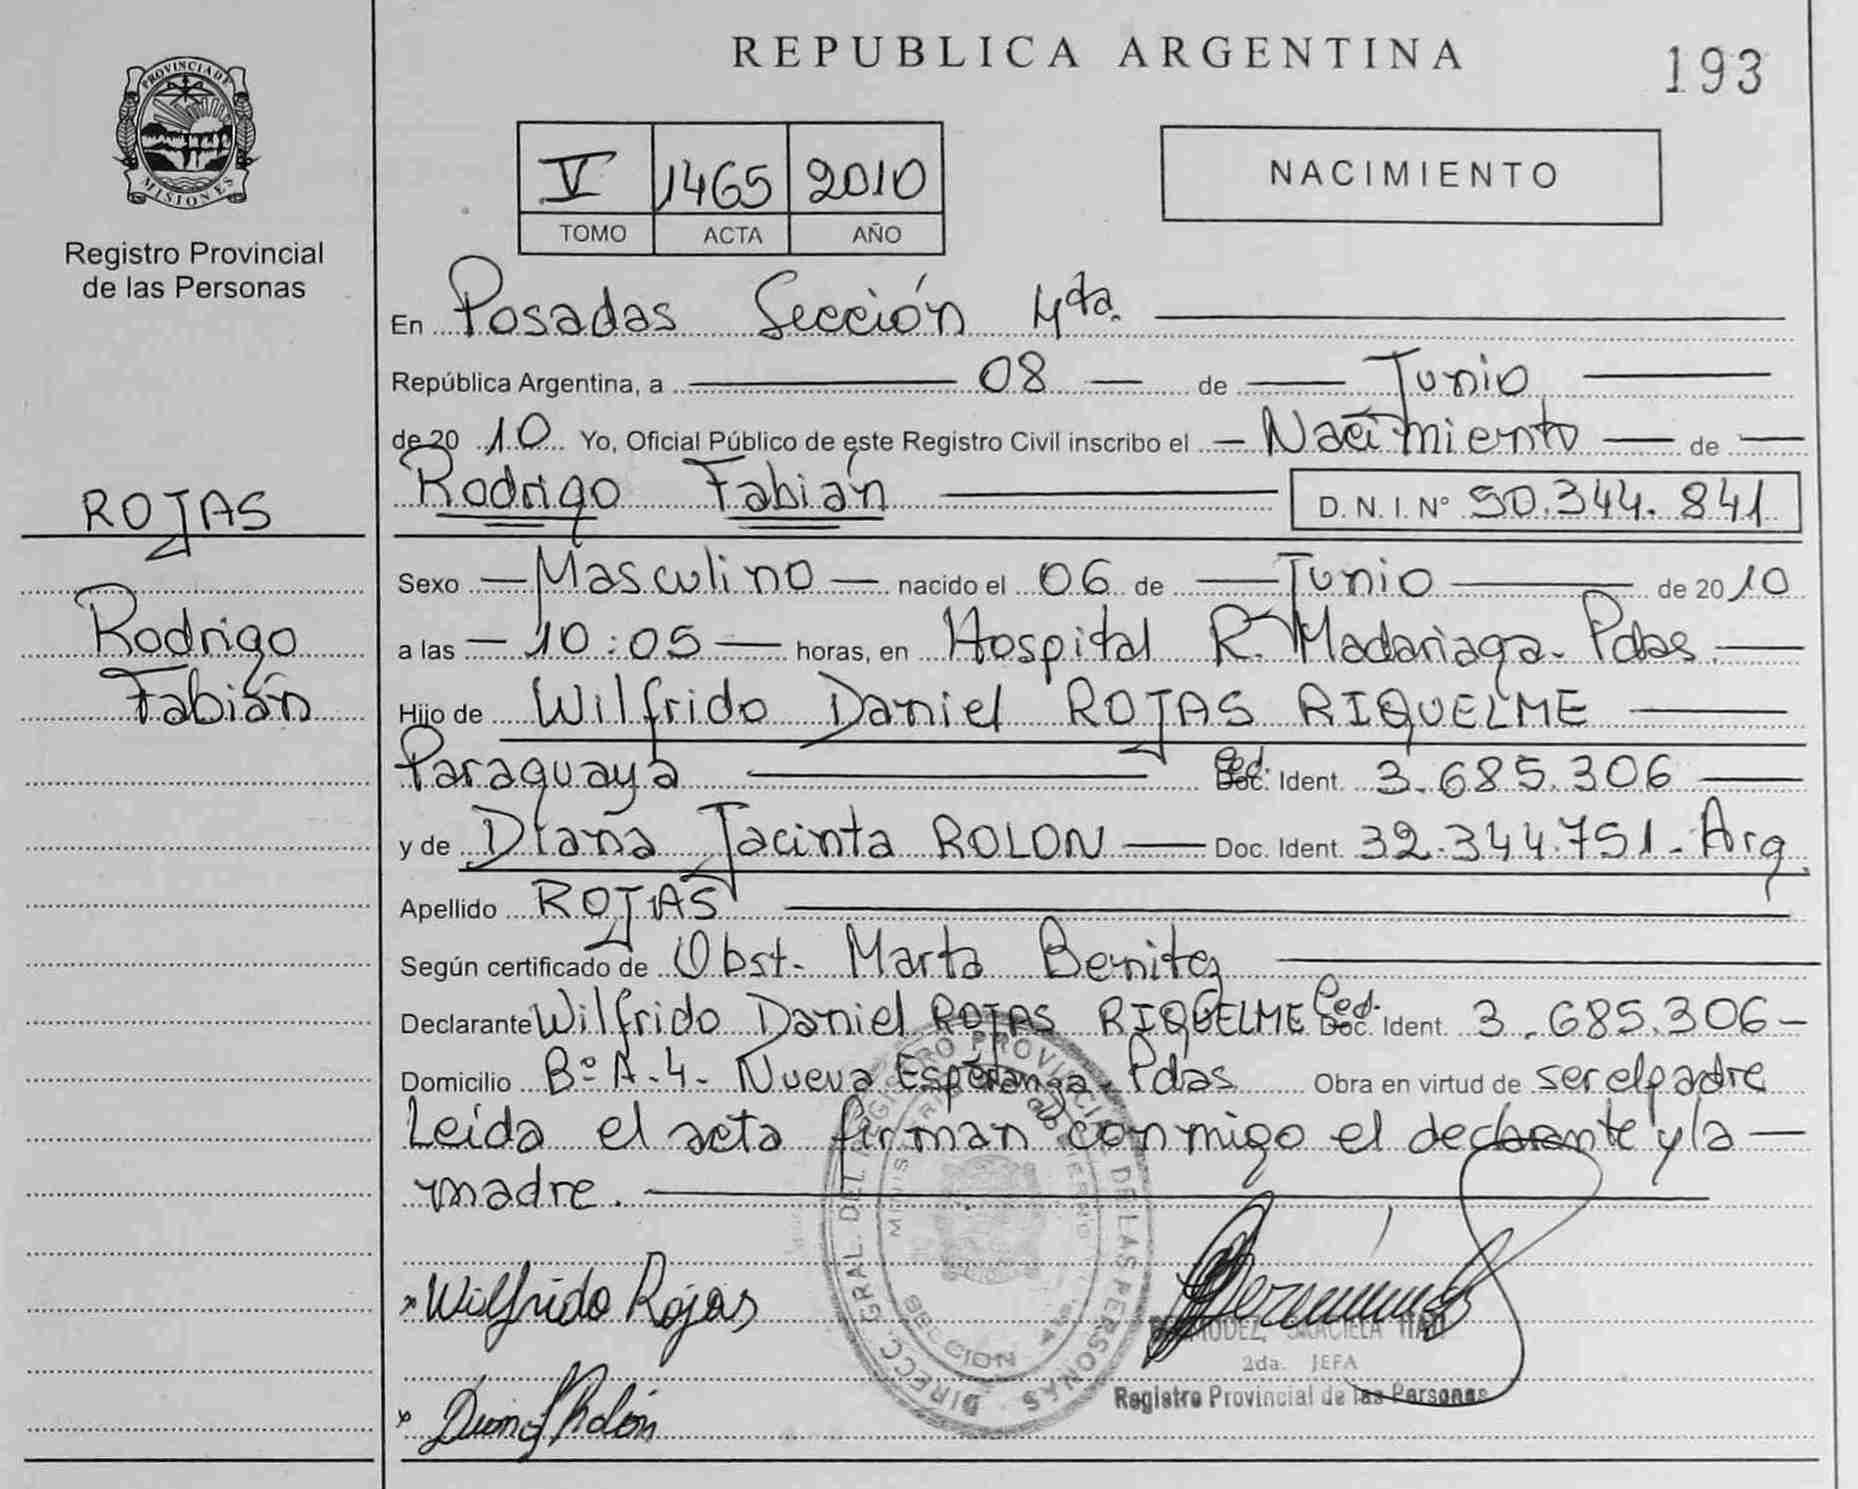 REPUBLICA ARGENTINA
193
PROVINCIA DE
MISIONES
Registro Provincial
de las Personas
V 1465 2010
TOMO ACTA AÑO
NACIMIENTO
En Posadas Sección 4ta.
República Argentina, a 08 de Junio
de 20 10 Yo, Oficial Público de este Registro Civil inscribo el Nacimiento de
Rodrigo Fabián D. N. I. Nº 50.344.841
ROJAS
Rodrigo
Fabián
Sexo Masculino nacido el 06 de Junio de 20 10
a las 10:05 horas, en Hospital R. Madariaga. Pdas.
Hijo de Wilfrido Daniel ROJAS RIQUELME
Paraguaya Ced. Ident. 3.685.306
y de Diana Jacinta ROLON Doc. Ident. 32.344.751. Arg.
Apellido ROJAS
Según certificado de Obst. Marta Benitez
Declarante Wilfrido Daniel ROJAS RIQUELME Ced. Ident. 3.685.306
Domicilio Bº A-4- Nueva Esperanza. Pdas Obra en virtud de ser el padre
Leída el acta firman conmigo el declarante y la
madre.
DIRECC. GRAL. DEL REGISTRO PROVINCIAL DE LAS PERSONAS
Wilfrido Rojas
2da. JEFA
Registro Provincial de las Personas
Diana Rolón